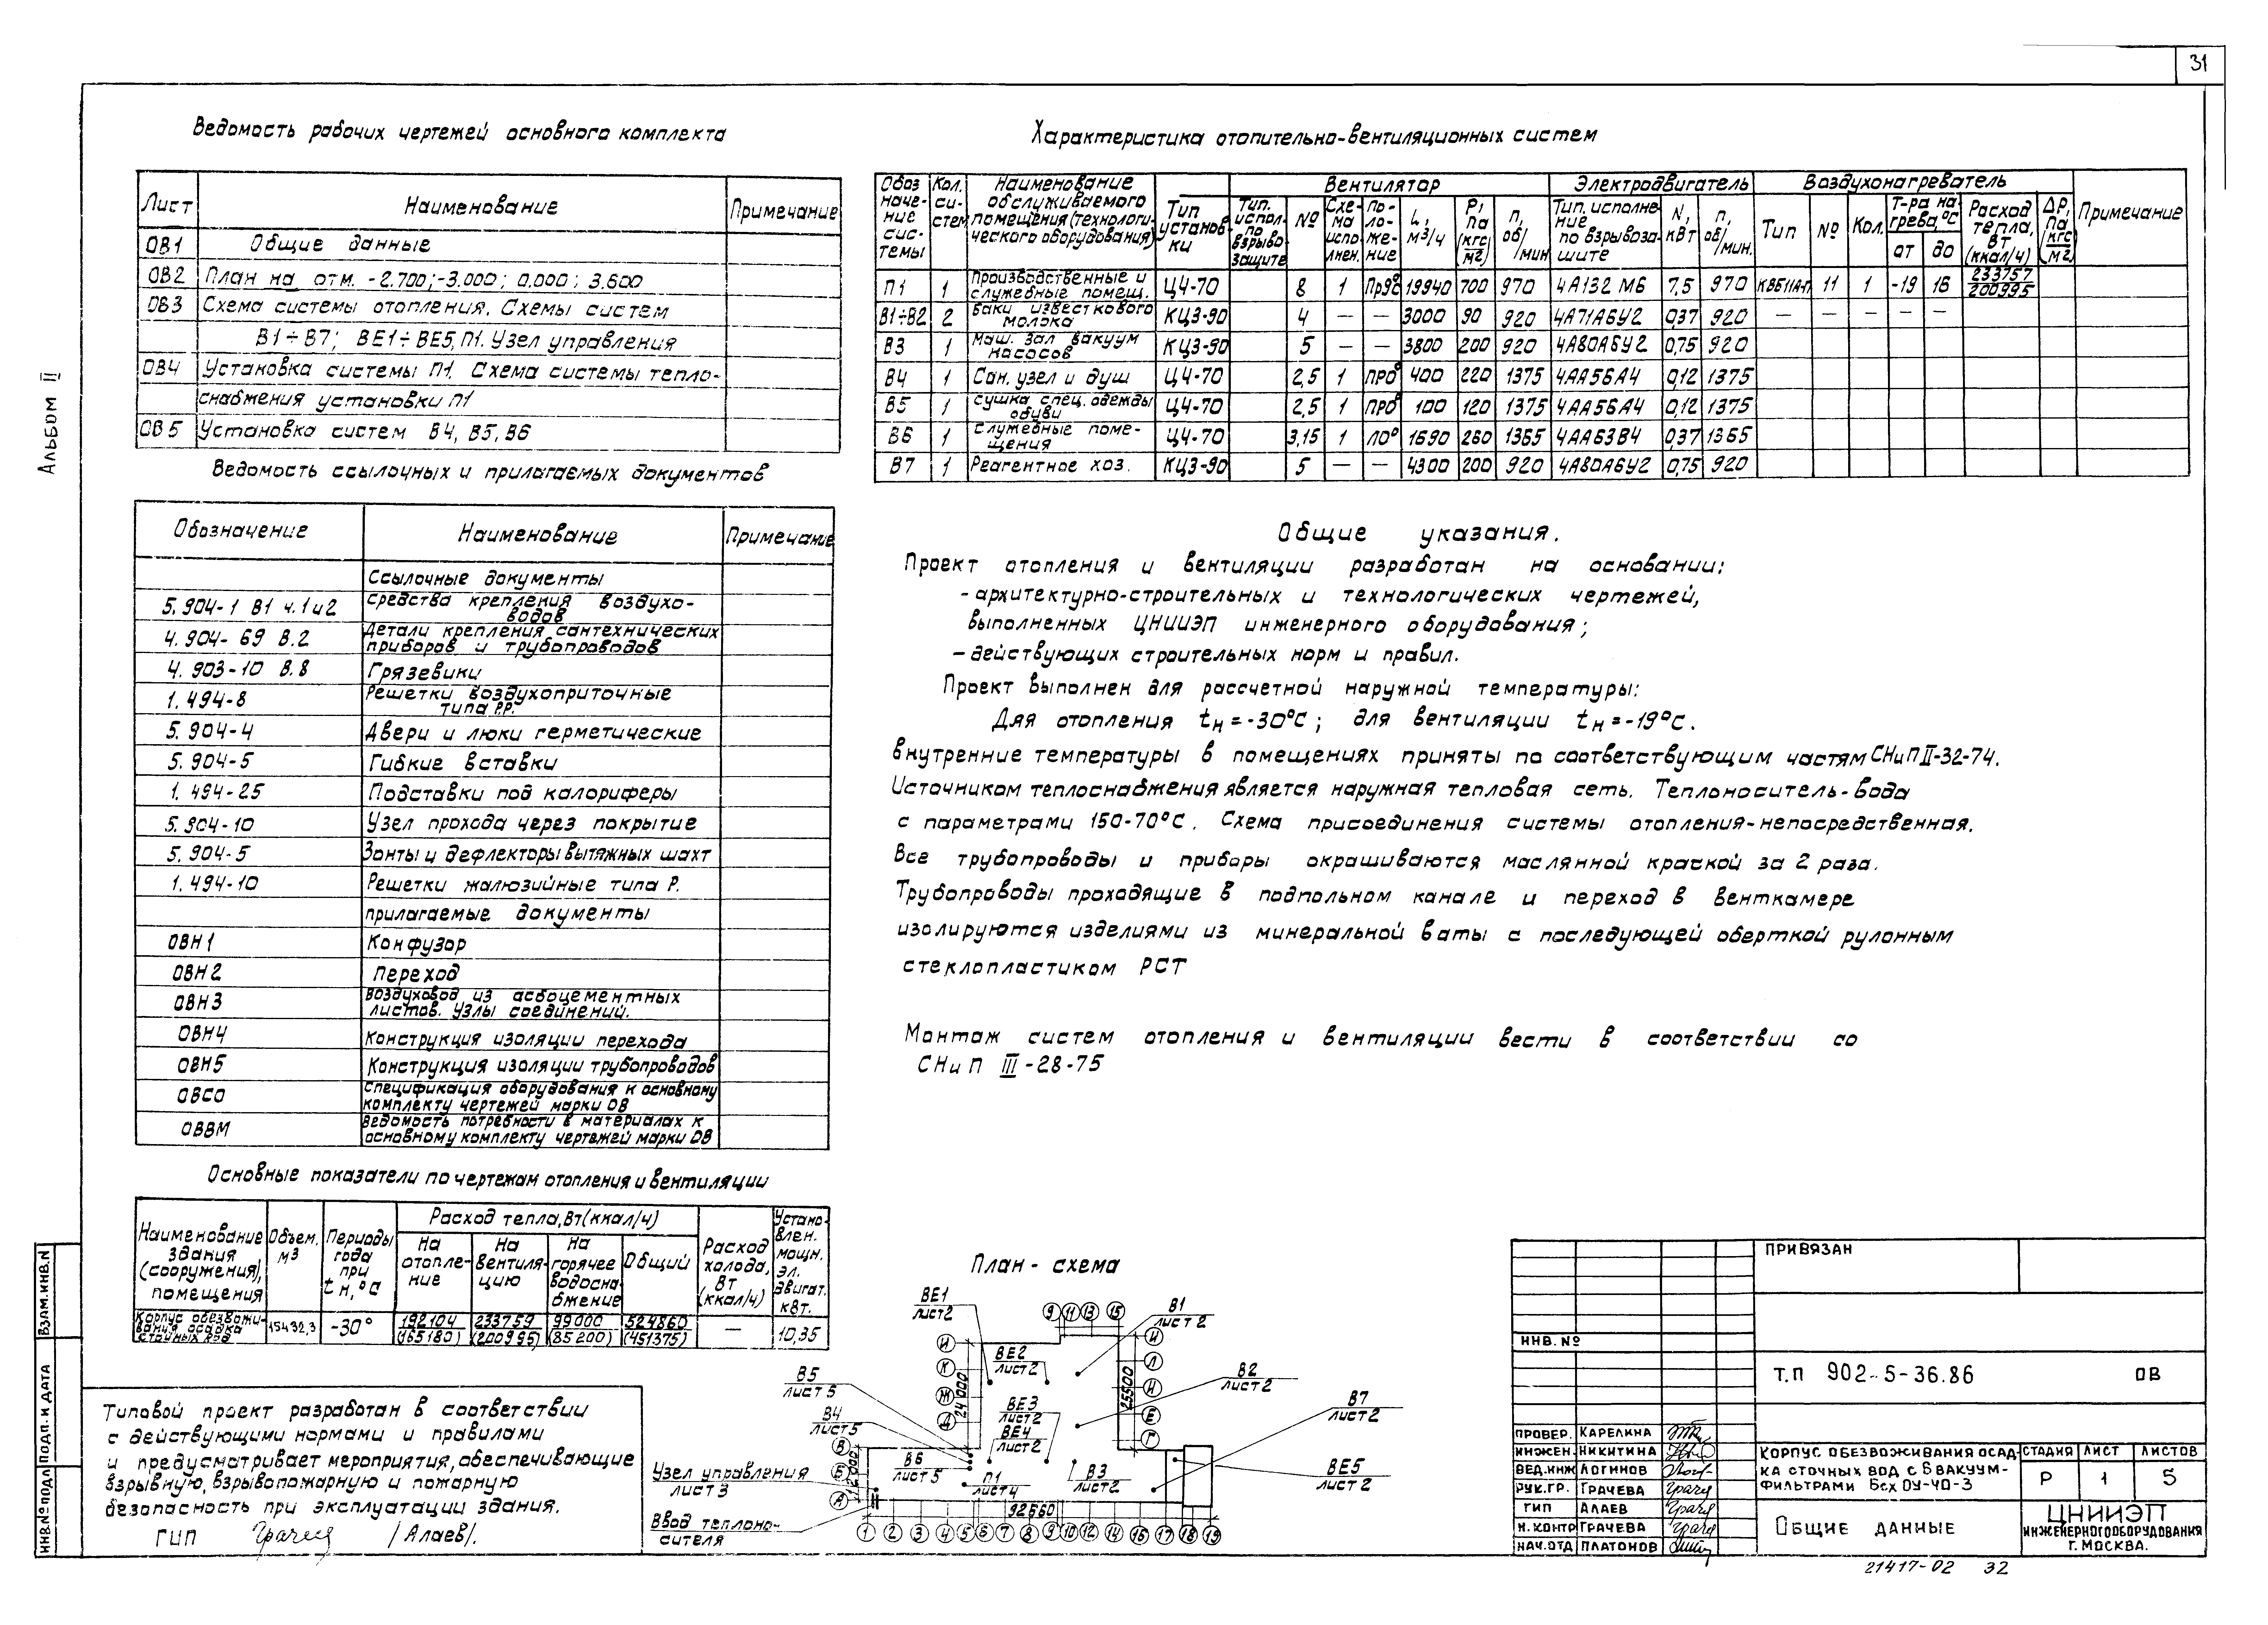 31
Альбом II
Ведомость рабочих чертежей основного комплекта
Лист Наименование Примечание
ОВ1 Общие данные
ОВ2 План на отм. -2.700; -3.000; 0.000; 3.600
ОВ3 Схема системы отопления. Схемы систем
В1÷В7; ВЕ1÷ВЕ5, П1. Узел управления
ОВ4 Установка системы П1. Схема системы тепло-
снабжения установки П1
ОВ5 Установка систем В4, В5, В6
Ведомость ссылочных и прилагаемых документов
Обозначение Наименование Примечание
Ссылочные документы
5.904-1 В1 ч.1и2 Средства крепления воздухо-
водов
4.904-69 В.2 Детали крепления сантехнических
приборов и трубопроводов
4.903-10 В.8 Грязевики
1.494-8 Решетки воздухоприточные
типа РР.
5.904-4 Двери и люки герметические
5.904-5 Гибкие вставки
1.494-25 Подставки под калориферы
5.904-10 Узел прохода через покрытие
5.904-5 Зонты и дефлекторы вытяжных шахт
1.494-10 Решетки жалюзийные типа Р.
прилагаемые документы
ОВН1 Конфузор
ОВН2 Переход
ОВН3 Воздуховод из асбоцементных
листов. Узлы соединений.
ОВН4 Конструкция изоляции перехода
ОВН5 Конструкция изоляции трубопроводов
ОВСО Спецификация оборудования к основному
комплекту чертежей марки ОВ
ОВВМ Ведомость потребности в материалах к
основному комплекту чертежей марки ОВ
Основные показатели по чертежам отопления и вентиляции
Наименование здания (сооружения), помещения
Объем. м3
Периоды года при tн, °С
Расход тепла, Вт (ккал/ч)
На отопле-ние
На вентиля-цию
На горячее водосна-бжение
Общий
Расход холода, Вт (ккал/ч)
Устано-влен. мощн. эл. двигат. кВт.
Корпус обезвожи-вания осадка сточных вод 15432,3 -30° 192104 233759 99000 524860 — 10,35
(165180) (200995) (85200) (451375)
Типовой проект разработан в соответствии
с действующими нормами и правилами
и предусматривает мероприятия, обеспечивающие
взрывную, взрывопожарную и пожарную
безопасность при эксплуатации здания.
ГИП /Алаев/.
Характеристика отопительно-вентиляционных систем
Обозначе-ние сис-темы
Кол. си-стем
Наименование обслуживаемого помещения (технологи-ческого оборудования)
Тип установ-ки
Вентилятор
Тип. испол. по взрыво защите
№
Схе-ма испо-лнен.
По-ло-же-ние
L, м³/ч
Р, Па (кгс/м2)
n, об/мин
Электродвигатель
Тип. исполне-ние по взрывоза-щите
N, кВт
n, об/мин.
Воздухонагреватель
Тип № Кол.
Т-ра на грева, °С
от до
Расход тепла, Вт (ккал/ч)
ΔР, Па (кгс/м2)
Примечание
П1 1 Производственные и служебные помещ. Ц4-70 8 1 Пр90 19940 700 970 4А132М6 7,5 970 КВБ11А-П 11 1 -19 16 233757 200995
В1÷В2 2 Баки известкового молока КЦ3-90 4 — — 3000 90 920 4А71А6У2 0,37 920 — — — — —
В3 1 Маш. зал вакуум насосов КЦ3-90 5 — — 3800 200 920 4А80А6У2 0,75 920
В4 1 Сан. узел и душ Ц4-70 2,5 1 ПР0° 400 220 1375 4АА56А4 0,12 1375
В5 1 Сушка спец. одежды обуви Ц4-70 2,5 1 ПР0° 100 120 1375 4АА56А4 0,12 1375
В6 1 Служебные поме-щения Ц4-70 3,15 1 Л0° 1690 260 1365 4АА63В4 0,37 1365
В7 1 Реагентное хоз. КЦ3-90 5 — — 4300 200 920 4А80А6У2 0,75 920
Общие указания.
Проект отопления и вентиляции разработан на основании:
- архитектурно-строительных и технологических чертежей,
выполненных ЦНИИЭП инженерного оборудования;
- действующих строительных норм и правил.
Проект выполнен для рассчетной наружной температуры:
Для отопления tн=-30°С; для вентиляции tн=-19°С.
внутренние температуры в помещениях приняты по соответствующим частям СНиП II-32-74.
Источником теплоснабжения является наружная тепловая сеть. Теплоноситель-вода
с параметрами 150-70°С. Схема присоединения системы отопления-непосредственная.
Все трубопроводы и приборы окрашиваются маслянной краской за 2 раза.
Трубопроводы проходящие в подпольном канале и переход в венткамере
изолируются изделиями из минеральной ваты с последующей оберткой рулонным
стеклопластиком РСТ
Монтаж систем отопления и вентиляции вести в соответствии со
СНиП III-28-75
План-схема
ВЕ1 лист2
В1 лист 2
ВЕ2 лист2
В2 лист2
В5 лист 5
В4 лист5
В6 лист 5
ВЕ3 лист2
ВЕ4 лист2
В7 лист2
П1 лист4
В3 лист-2
ВЕ5 лист 2
Узел управления лист3
Ввод теплоно-сителя
9 11 13 15
И К Ж Д В Б А
И Л И Е Г
24000
25500
12000
92660
1 2 3 4 5 6 7 8 9 10 12 14 16 17 18 19
ПРИВЯЗАН
ИНВ. №
Т.П 902-5-36.86 ОВ
ПРОВЕР. КАРЕЛИНА
ИНЖЕН. НИКИТИНА
ВЕД.ИНЖ ЛОГИНОВ
РУК.ГР. ГРАЧЕВА
ГИП АЛАЕВ
Н.КОНТР ГРАЧЕВА
НАЧ.ОТД ПЛАТОНОВ
КОРПУС ОБЕЗВОЖИВАНИЯ ОСАД-
КА СТОЧНЫХ ВОД С 6 ВАКУУМ-
ФИЛЬТРАМИ БСХ ОУ-40-3
СТАДИЯ ЛИСТ ЛИСТОВ
Р 1 5
ОБЩИЕ ДАННЫЕ
ЦНИИЭП
ИНЖЕНЕРНОГО ОБОРУДОВАНИЯ
Г. МОСКВА.
21417-02 32
ВЗАМ.ИНВ.N
ПОДП. И ДАТА
ИНВ.№ ПОДЛ